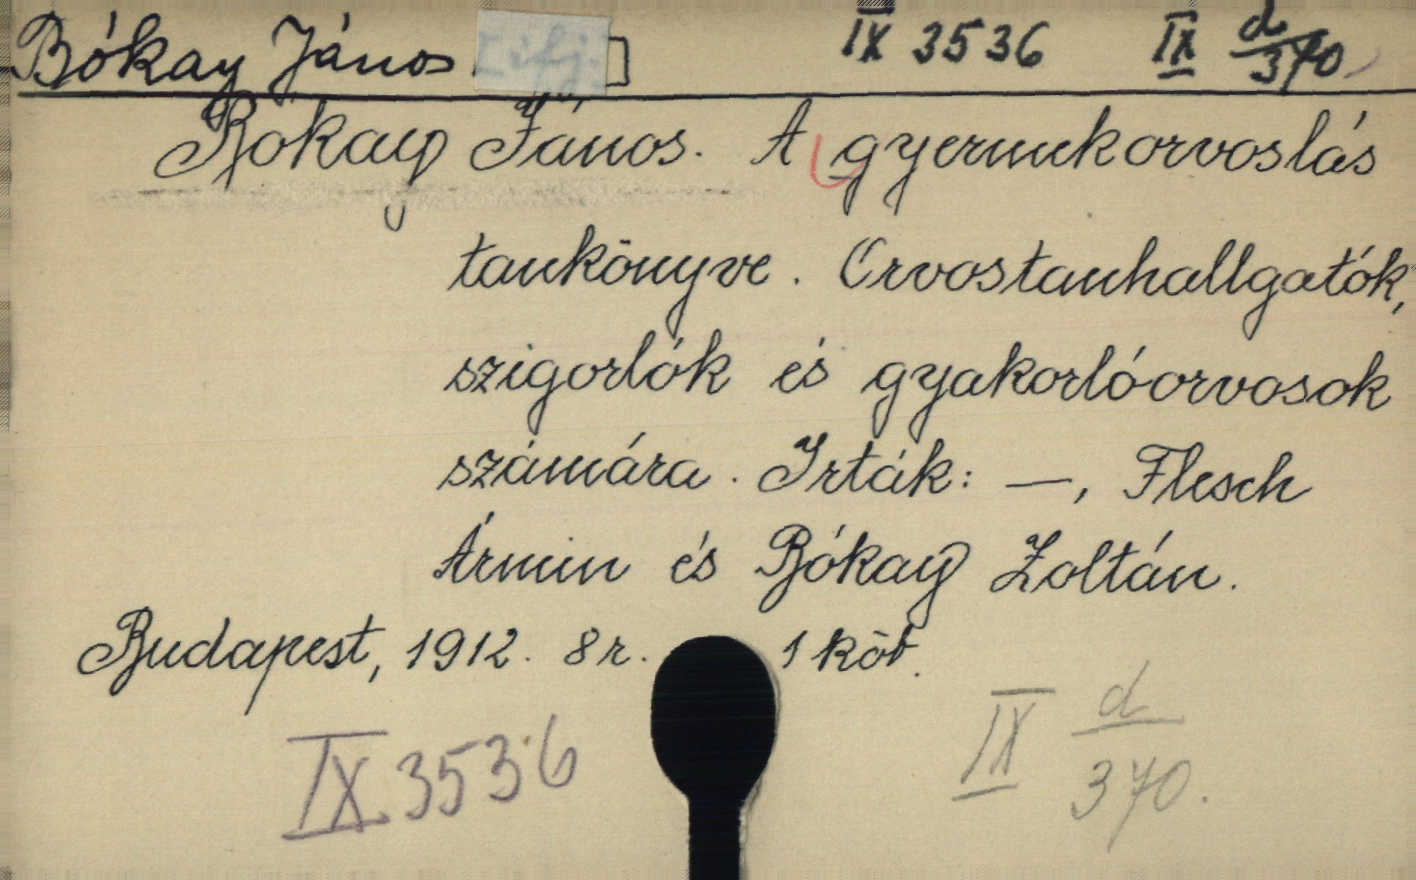 Bókay János [ifj.] IX 3536 IX d/370
Bókay János. A gyermekorvoslás
tankönyve. Orvostanhallgatók,
szigorlók és gyakorlóorvosok
számára. Irták: —, Flesch
Ármin és Bókay Zoltán.
Budapest, 1912. 8 r. 1 köt.
IX. 3536 IX d/370.